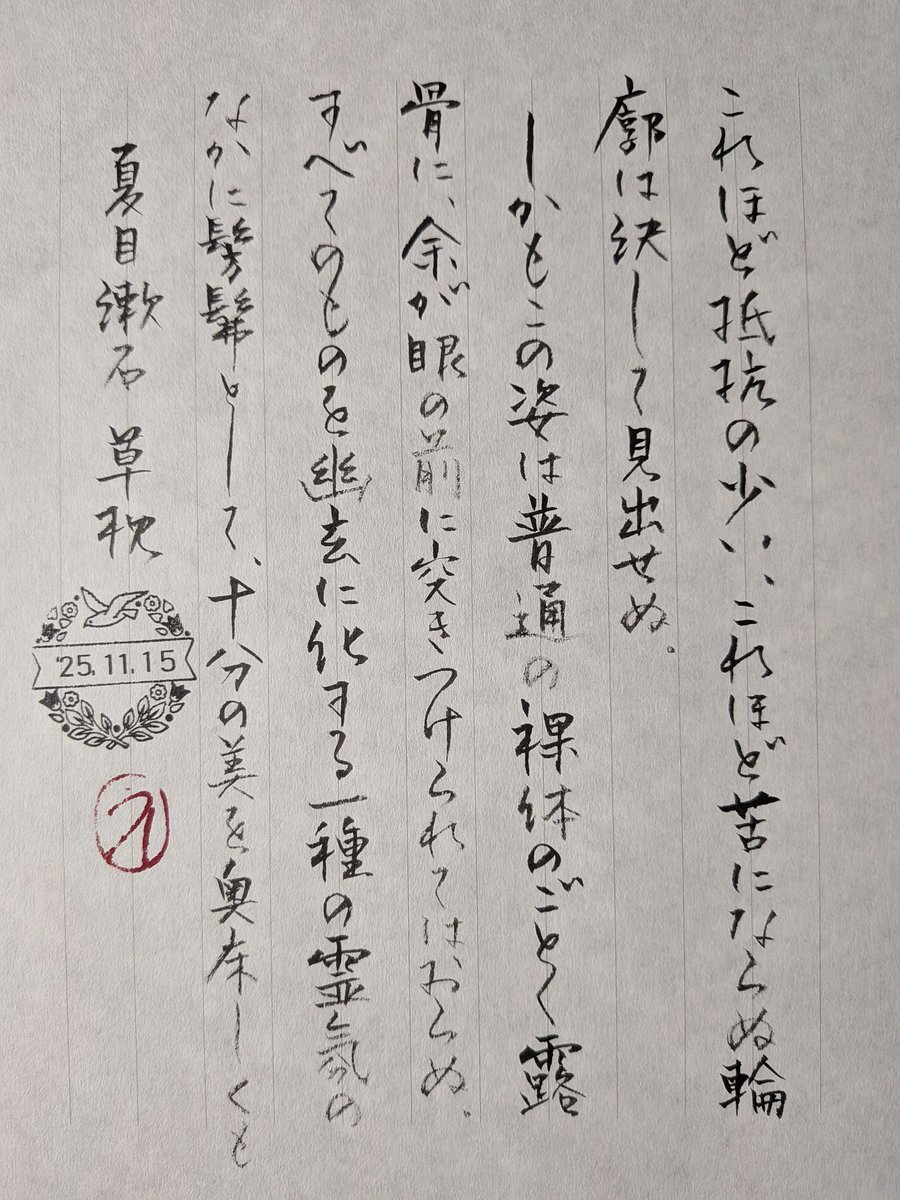 これほど抵抗の少い、これほど苦にならぬ輪
廓は決して見出せぬ。
しかもこの姿は普通の裸体のごとく露
骨に、余が眼の前に突きつけられてはおらぬ。
すべてのものを幽玄に化する一種の霊氛の
なかに髣髴として、十分の美を奥床しくも
夏目漱石 草枕
'25.11.15